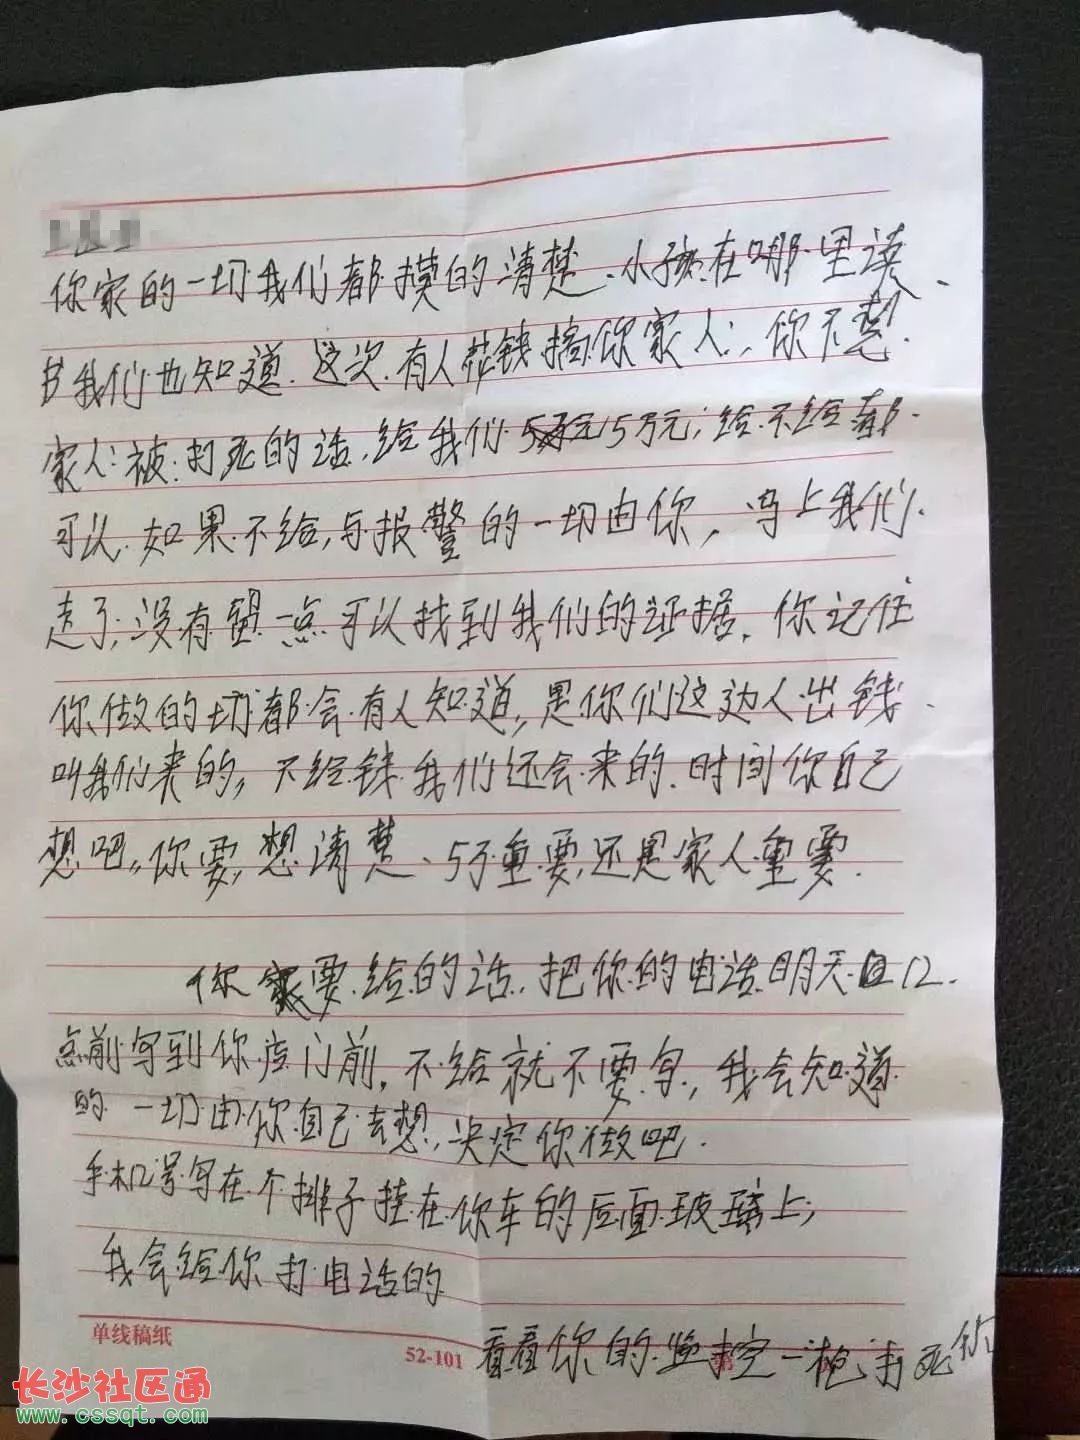 你家的一切我们都摸的清楚、小孩在哪里读、
书我们也知道.这次.有人花钱搞你家人、你不想.
家人被打死的话,给我们5万元15万元;给不给都.
可以.如果不给,与报警的一切由你,马上我们.
走了,没有留一点可以找到我们的证据.你记住
你做的切都会有人知道,是你们这边人出钱.
叫我们来的,不给钱我们还会来的.时间你自己
想吧,你要,想清楚、5万重要,还是家人重要.
你家要给的话.把你的电话明天12.
点前写到你店门前.不给就不要写,我会知道.
的一切由你自己去想,决定你做吧.
手机号写在个排子挂在你车的后面玻璃上;
我会给你打电话的
单线稿纸
52-101 看看你的监控一枪打死你
长沙社区通
www.cssqt.com